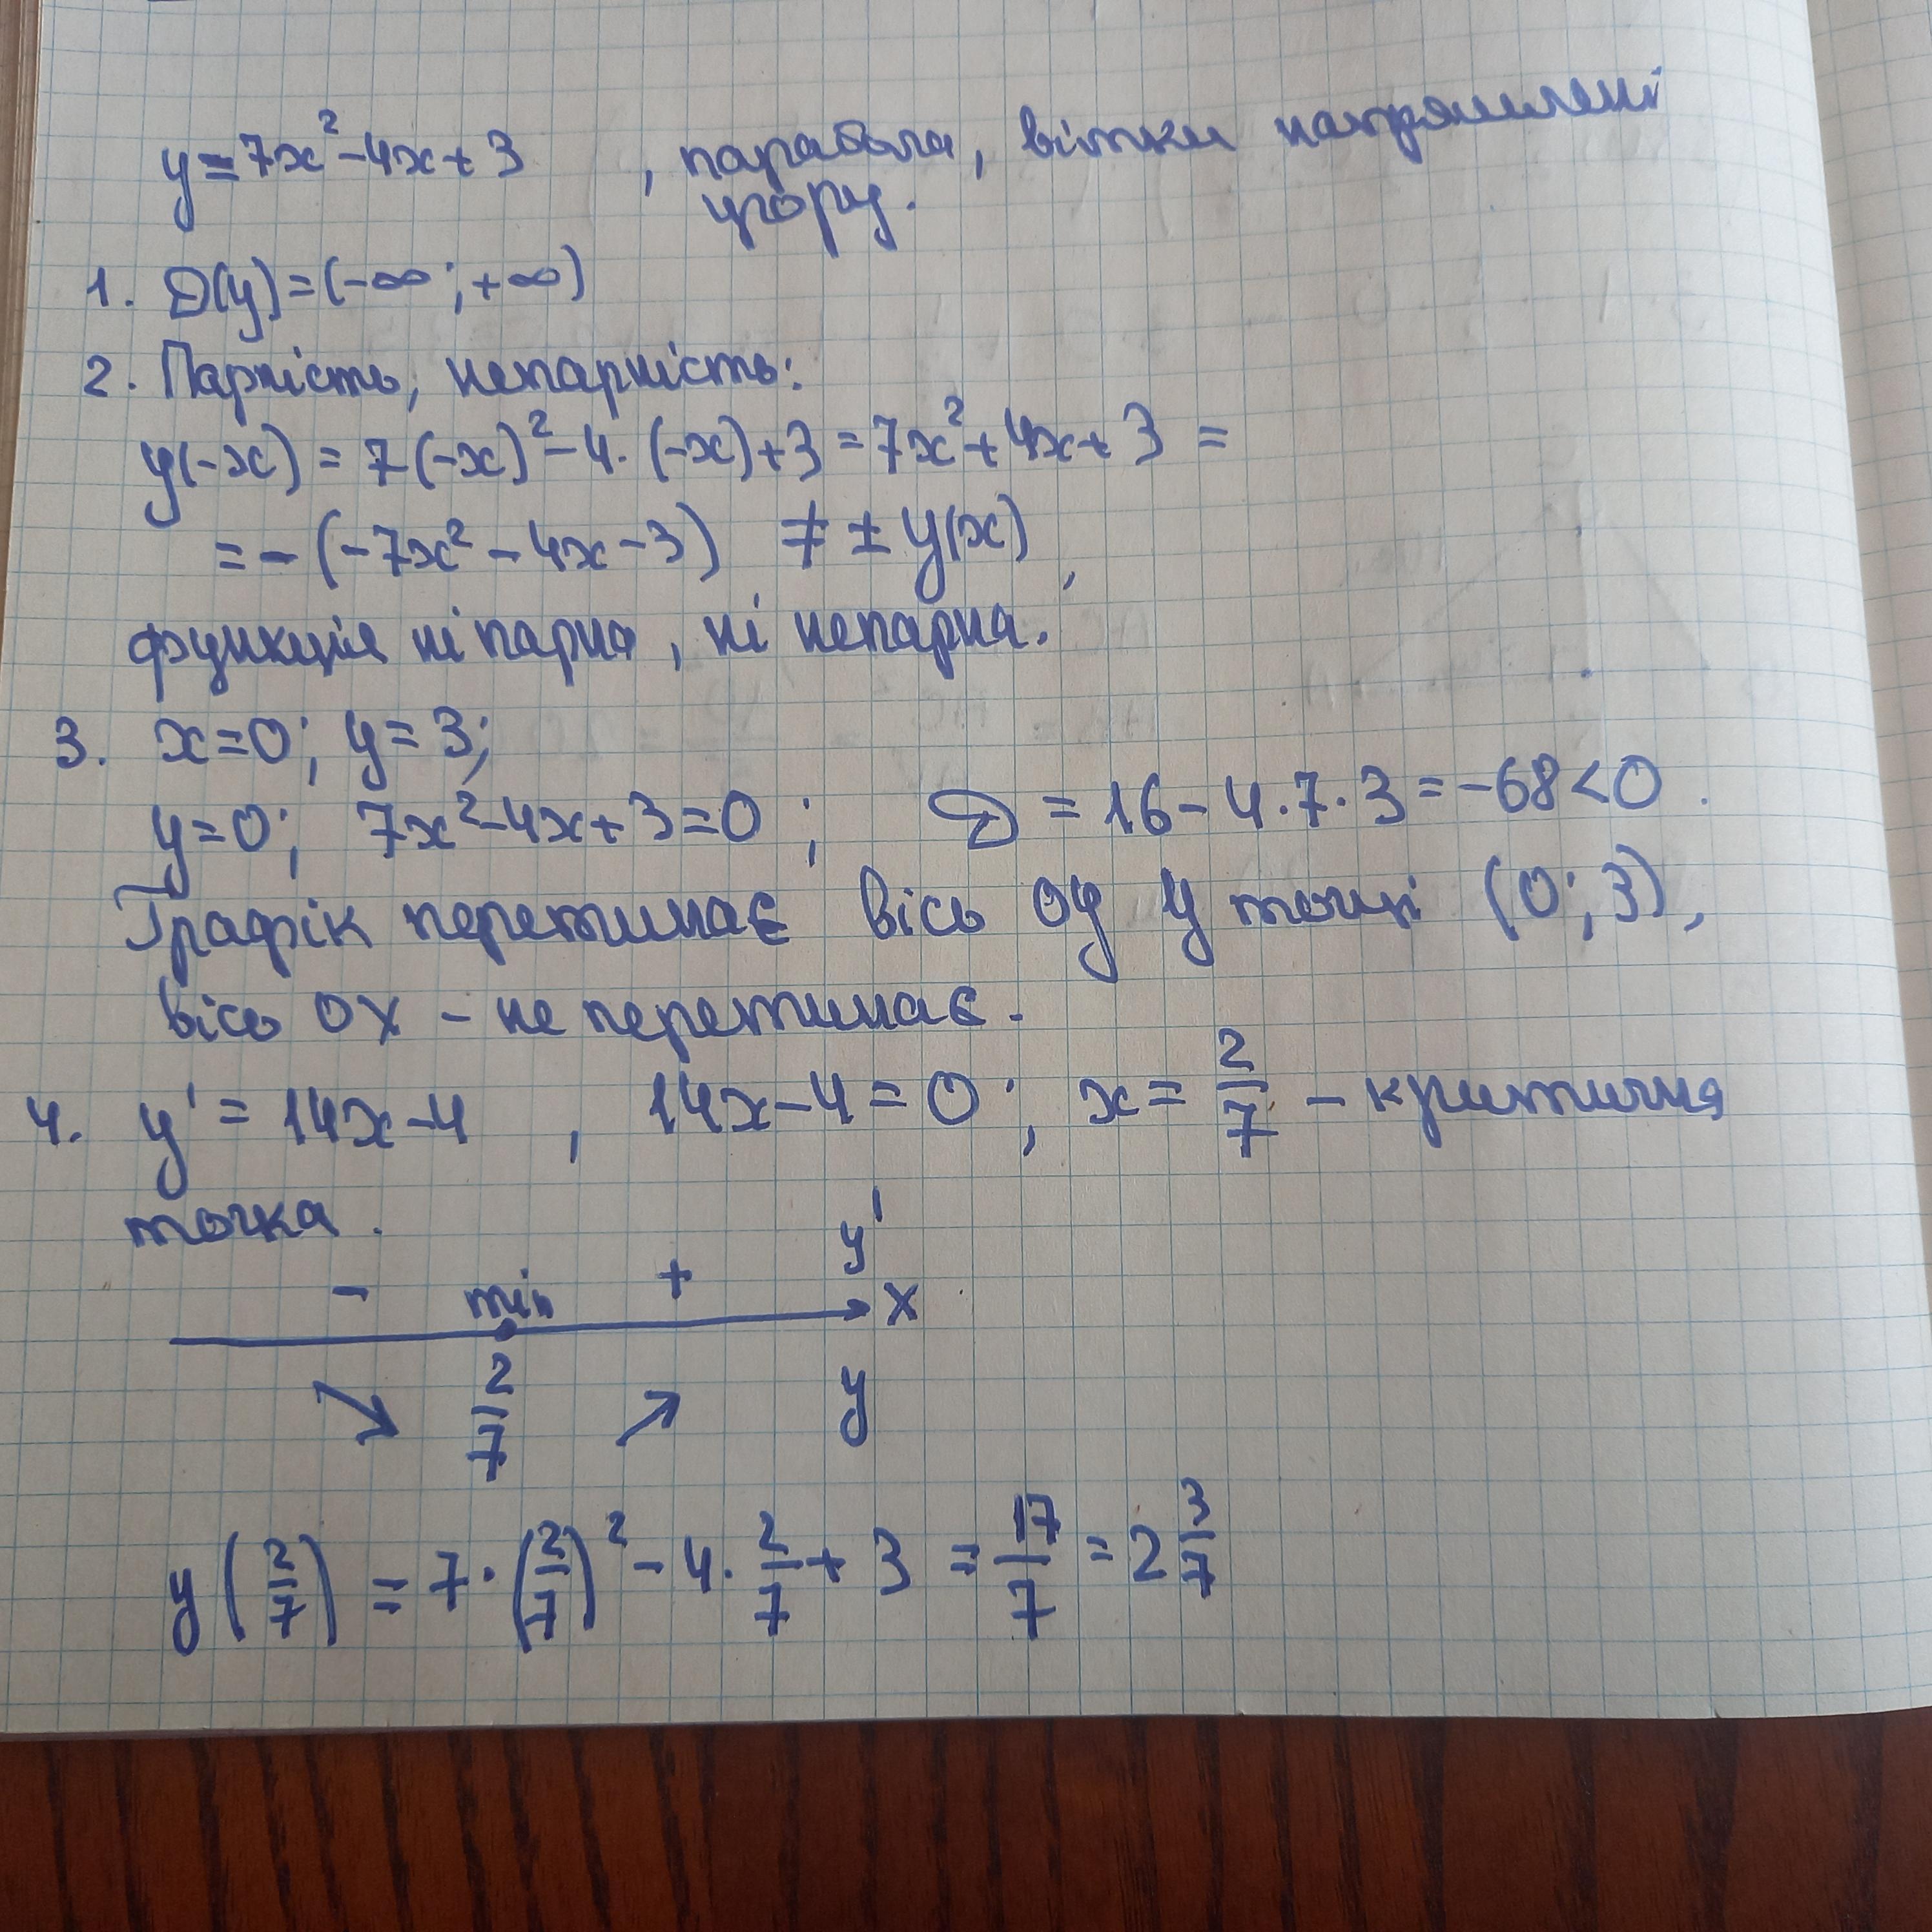 y = 7x² - 4x + 3 , парабола, вітки напрямлені
угору.
1. D(y) = (-∞; +∞)
2. Парність, непарність:
y(-x) = 7(-x)² - 4·(-x) + 3 = 7x² + 4x + 3 =
= -(-7x² - 4x - 3) ≠ ± y(x),
функція ні парна, ні непарна.
3. x = 0; y = 3;
y = 0; 7x² - 4x + 3 = 0; D = 16 - 4·7·3 = -68 < 0.
Графік перетинає вісь oy у точці (0; 3),
вісь ox - не перетинає.
4. y' = 14x - 4, 14x - 4 = 0; x = 2/7 - критична
точка.
y'
- min + x
2/7 y
y(2/7) = 7·(2/7)² - 4·2/7 + 3 = 17/7 = 2 3/7